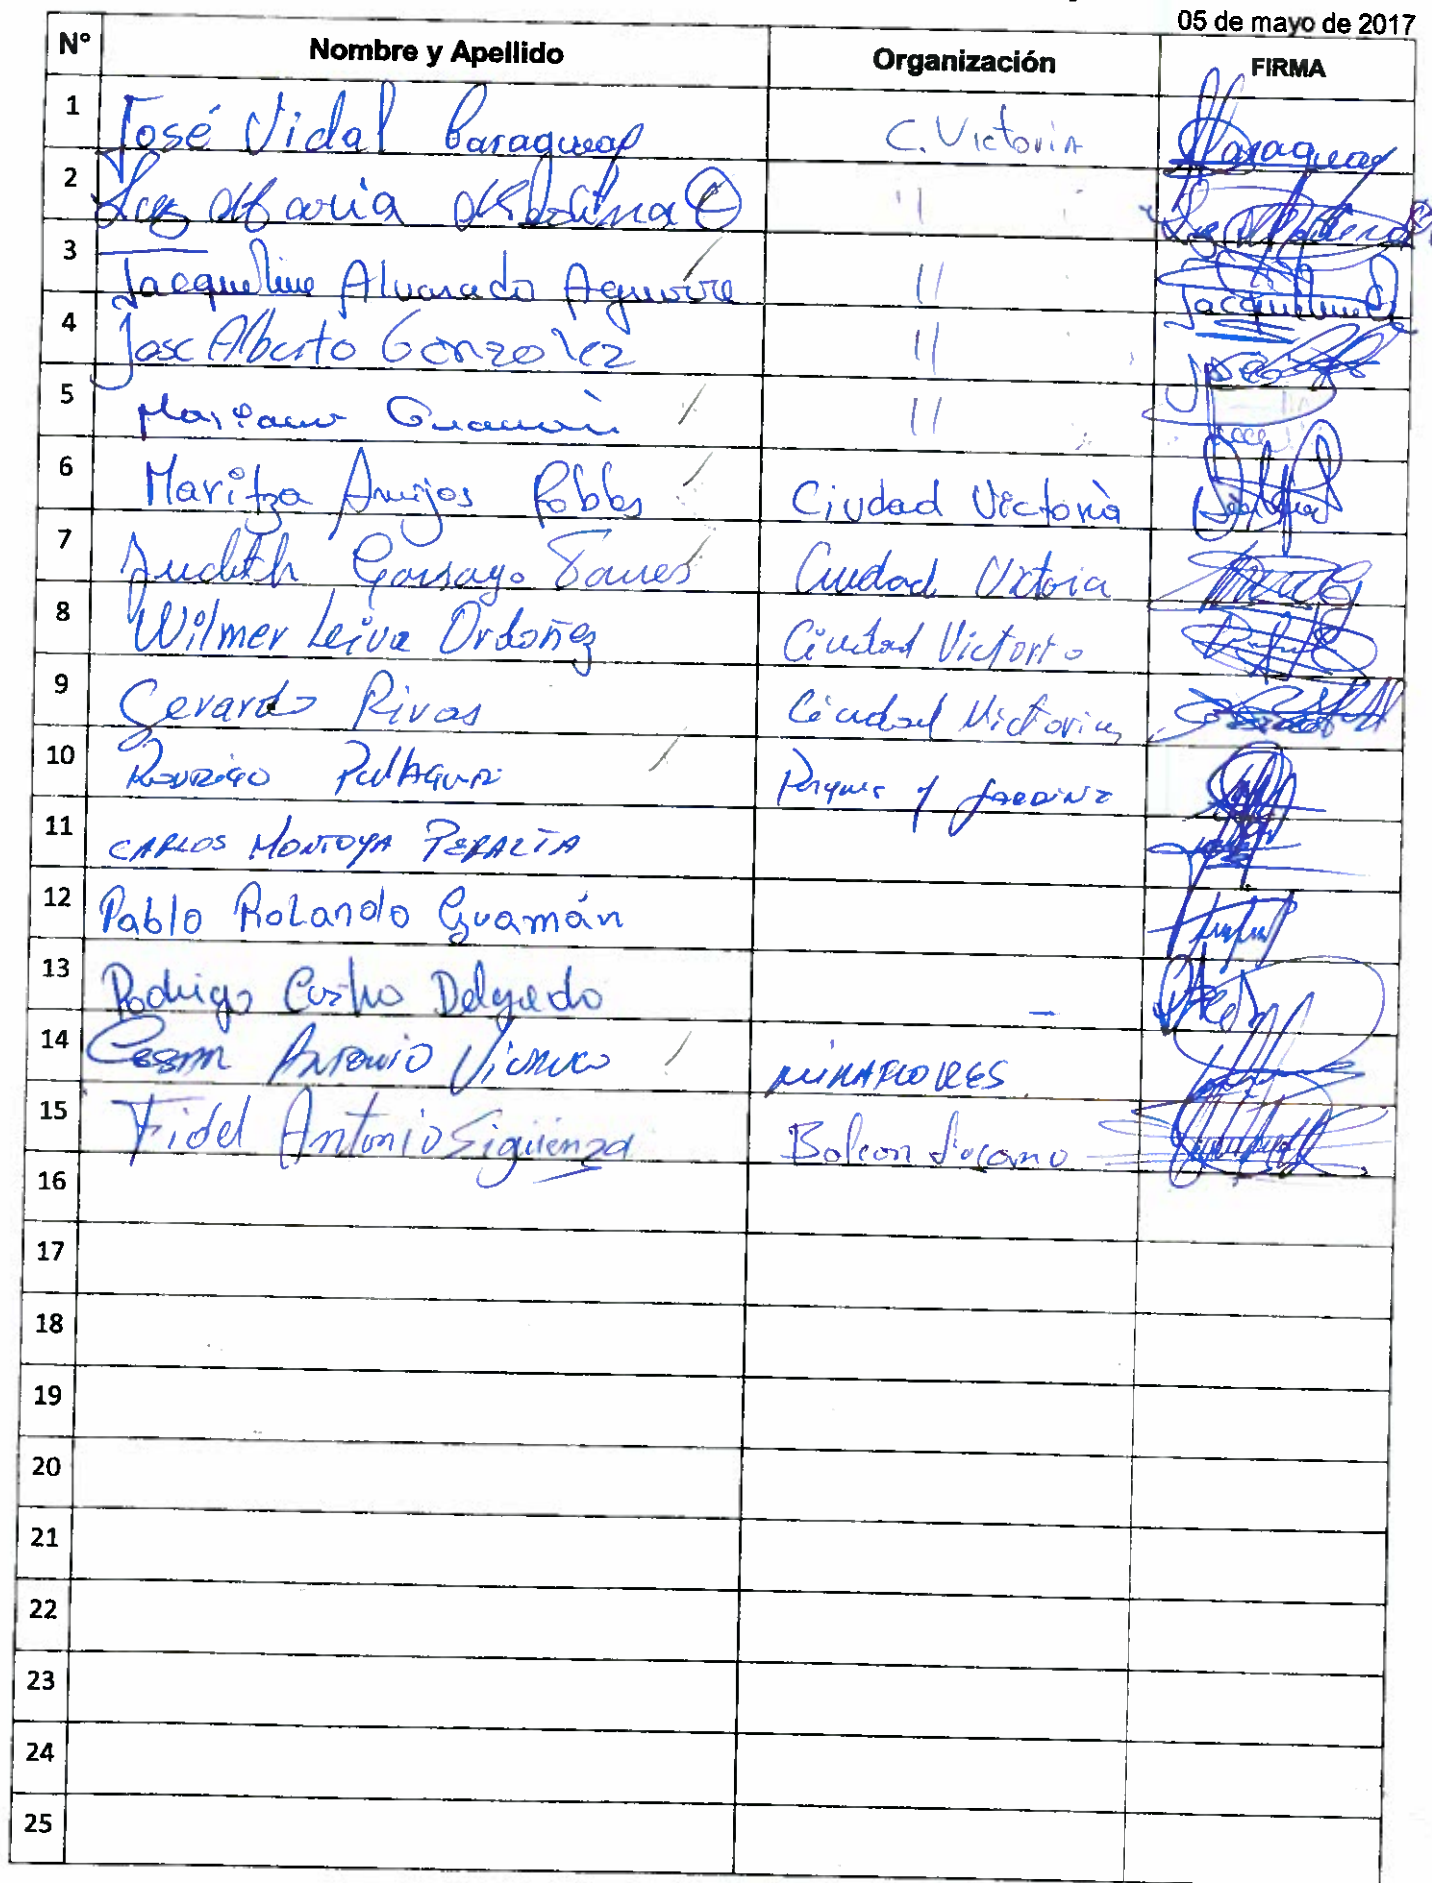 05 de mayo de 2017
N° Nombre y Apellido Organización FIRMA
1 José Vidal Paraguay C. Victoria Paraguay
2 Luz María Medina C " Luz Medina
3 Jacqueline Alvarado Aguirre " Jacqueline
4 Jose Alberto Gonzalez " Jose
5 Mariano Guamán "
6 Maritza Armijos Robles Ciudad Victoria
7 Judith Gonzaga Ciudad Victoria
8 Wilmer Leiva Ordoñez Ciudad Victoria
9 Gerardo Rivas Ciudad Victoria
10 Rodrigo Pullaguari Parques y Jardines
11 CARLOS MONTOYA PERALTA
12 Pablo Rolando Guamán
13 Rodrigo Castro Delgado -
14 Cesar Antonio MIRAFLORES
15 Fidel Antonio Sigüenza Balcon Lojano
16
17
18
19
20
21
22
23
24
25